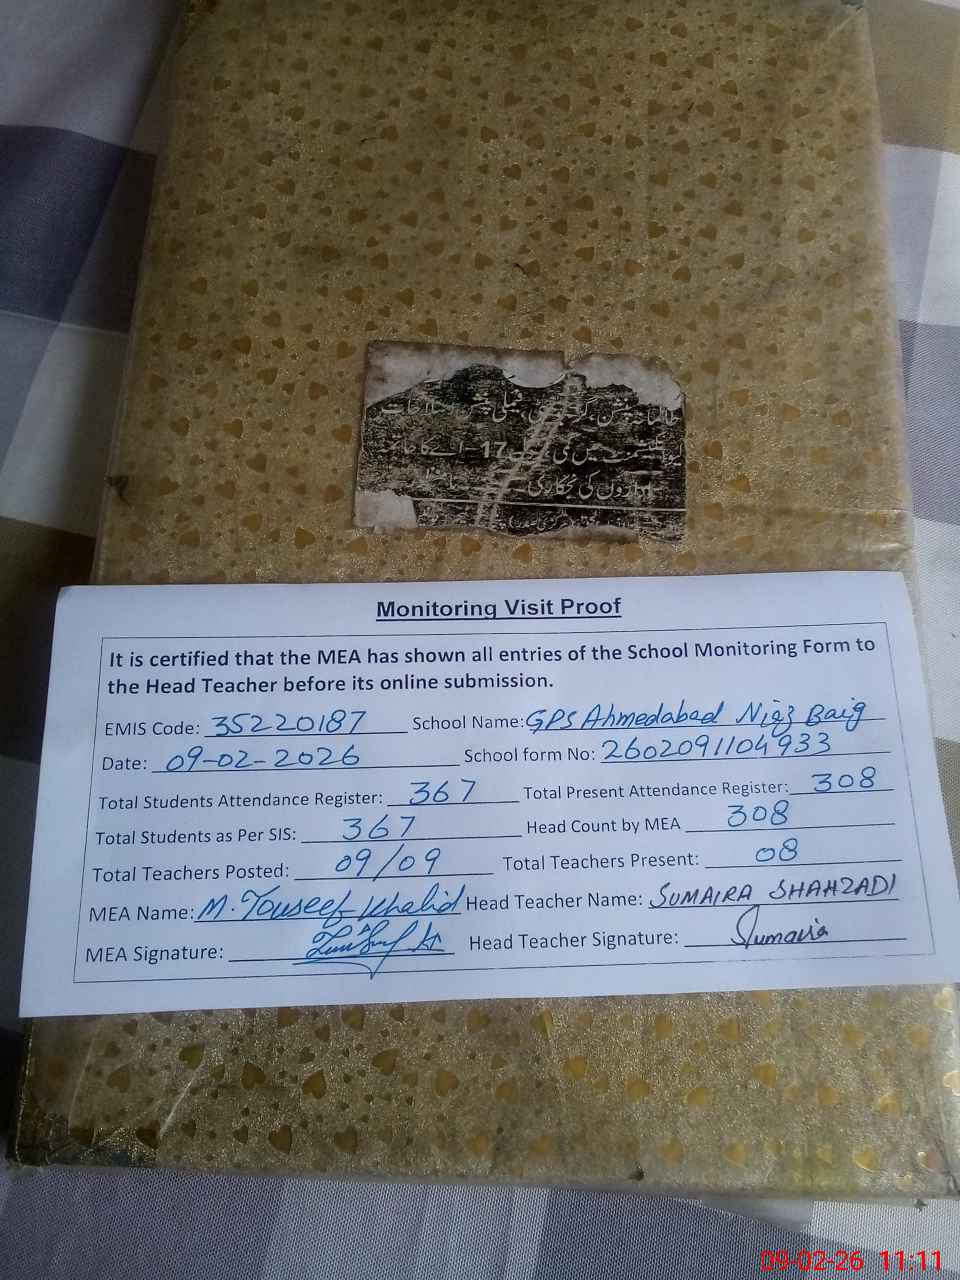 فیملی پنشن
میں کمی 17-اے کا خاتمہ
اداروں کی نجکاری
Monitoring Visit Proof
It is certified that the MEA has shown all entries of the School Monitoring Form to
the Head Teacher before its online submission.
EMIS Code: 35220187 School Name: GPS Ahmedabad Niaz Baig
Date: 09-02-2026 School form No: 2602091104933
Total Students Attendance Register: 367 Total Present Attendance Register: 308
Total Students as Per SIS: 367 Head Count by MEA 308
Total Teachers Posted: 09/09 Total Teachers Present: 08
MEA Name: M. Touseef Khalid Head Teacher Name: SUMAIRA SHAHZADI
MEA Signature: Head Teacher Signature: Sumaira
09-02-26 11:11